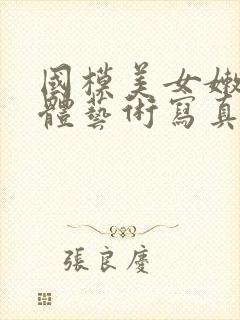 國模美女嫩
體藝術寫真
張良慶